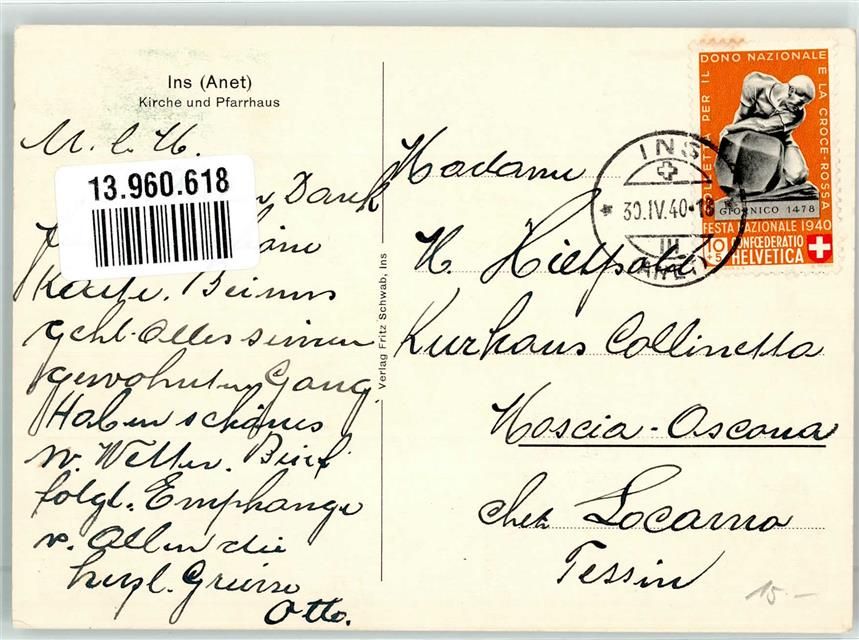 Ins (Anet)
Kirche und Pfarrhaus
M. l. H.
13.960.618
Dank
Karte. Bei uns
geht Alles seinen
gewohnten Gang.
Haben schönes
w. Wetter. Brief
folgt. Empfange
v. Allen die
herzl. Grüsse
Otto.
Verlag Fritz Schwab, Ins
COLLETTA PER IL DONO NAZIONALE E LA CROCE-ROSSA
GIORNICO 1478
FESTA NAZIONALE 1940
10+5 CONFŒDERATIO
HELVETICA
INS
30.IV.40-18
(ANET)
Madame
H.
Kurhaus Collinetta
Moscia-Ascona
chez Locarno
Tessin
15.-